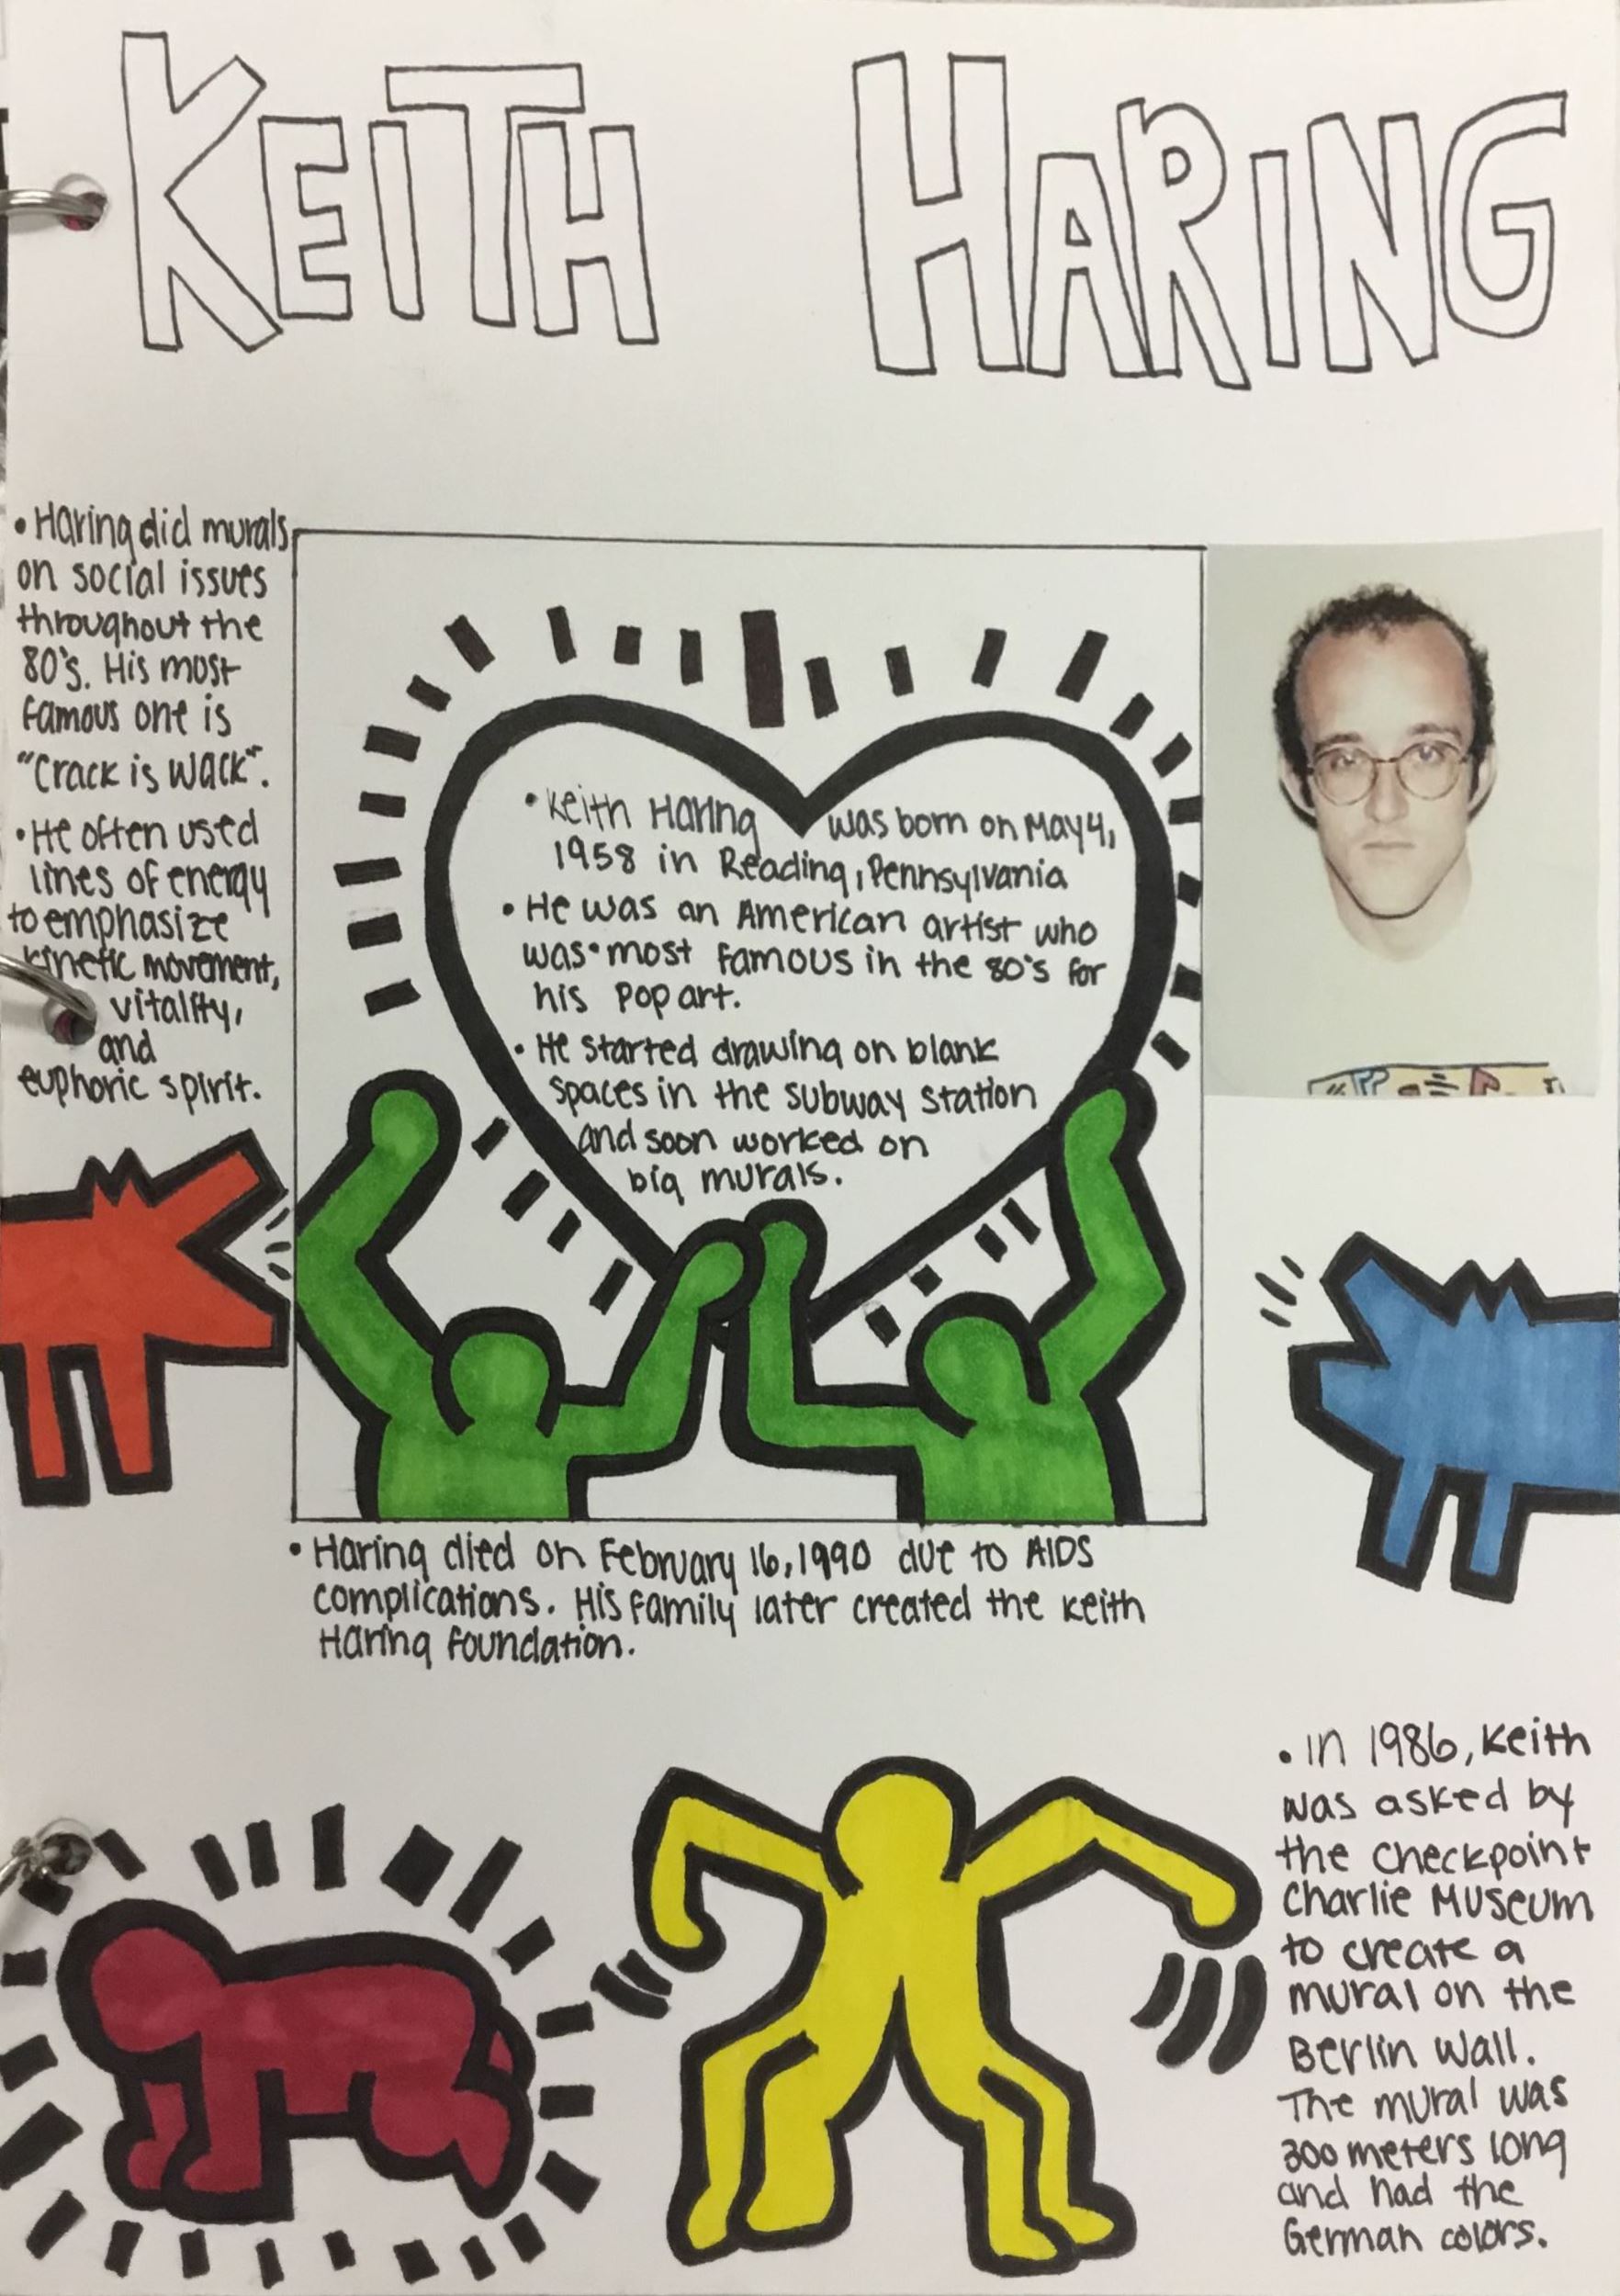 KEITH HARING
• Haring did murals
on social issues
throughout the
80's. His most
famous one is
"Crack is wack".
• He often used
lines of energy
to emphasize
kinetic movement,
vitality,
and
euphoric spirit.
• Keith Haring was born on May 4,
1958 in Reading, Pennsylvania
• He was an American artist who
was most famous in the 80's for
his Pop art.
• He started drawing on blank
spaces in the subway station
and soon worked on
big murals.
• Haring died on February 16, 1990 due to AIDS
complications. His family later created the Keith
Haring foundation.
• In 1986, Keith
was asked by
the checkpoint
Charlie Museum
to create a
mural on the
Berlin Wall.
The mural was
300 meters long
and had the
German colors.